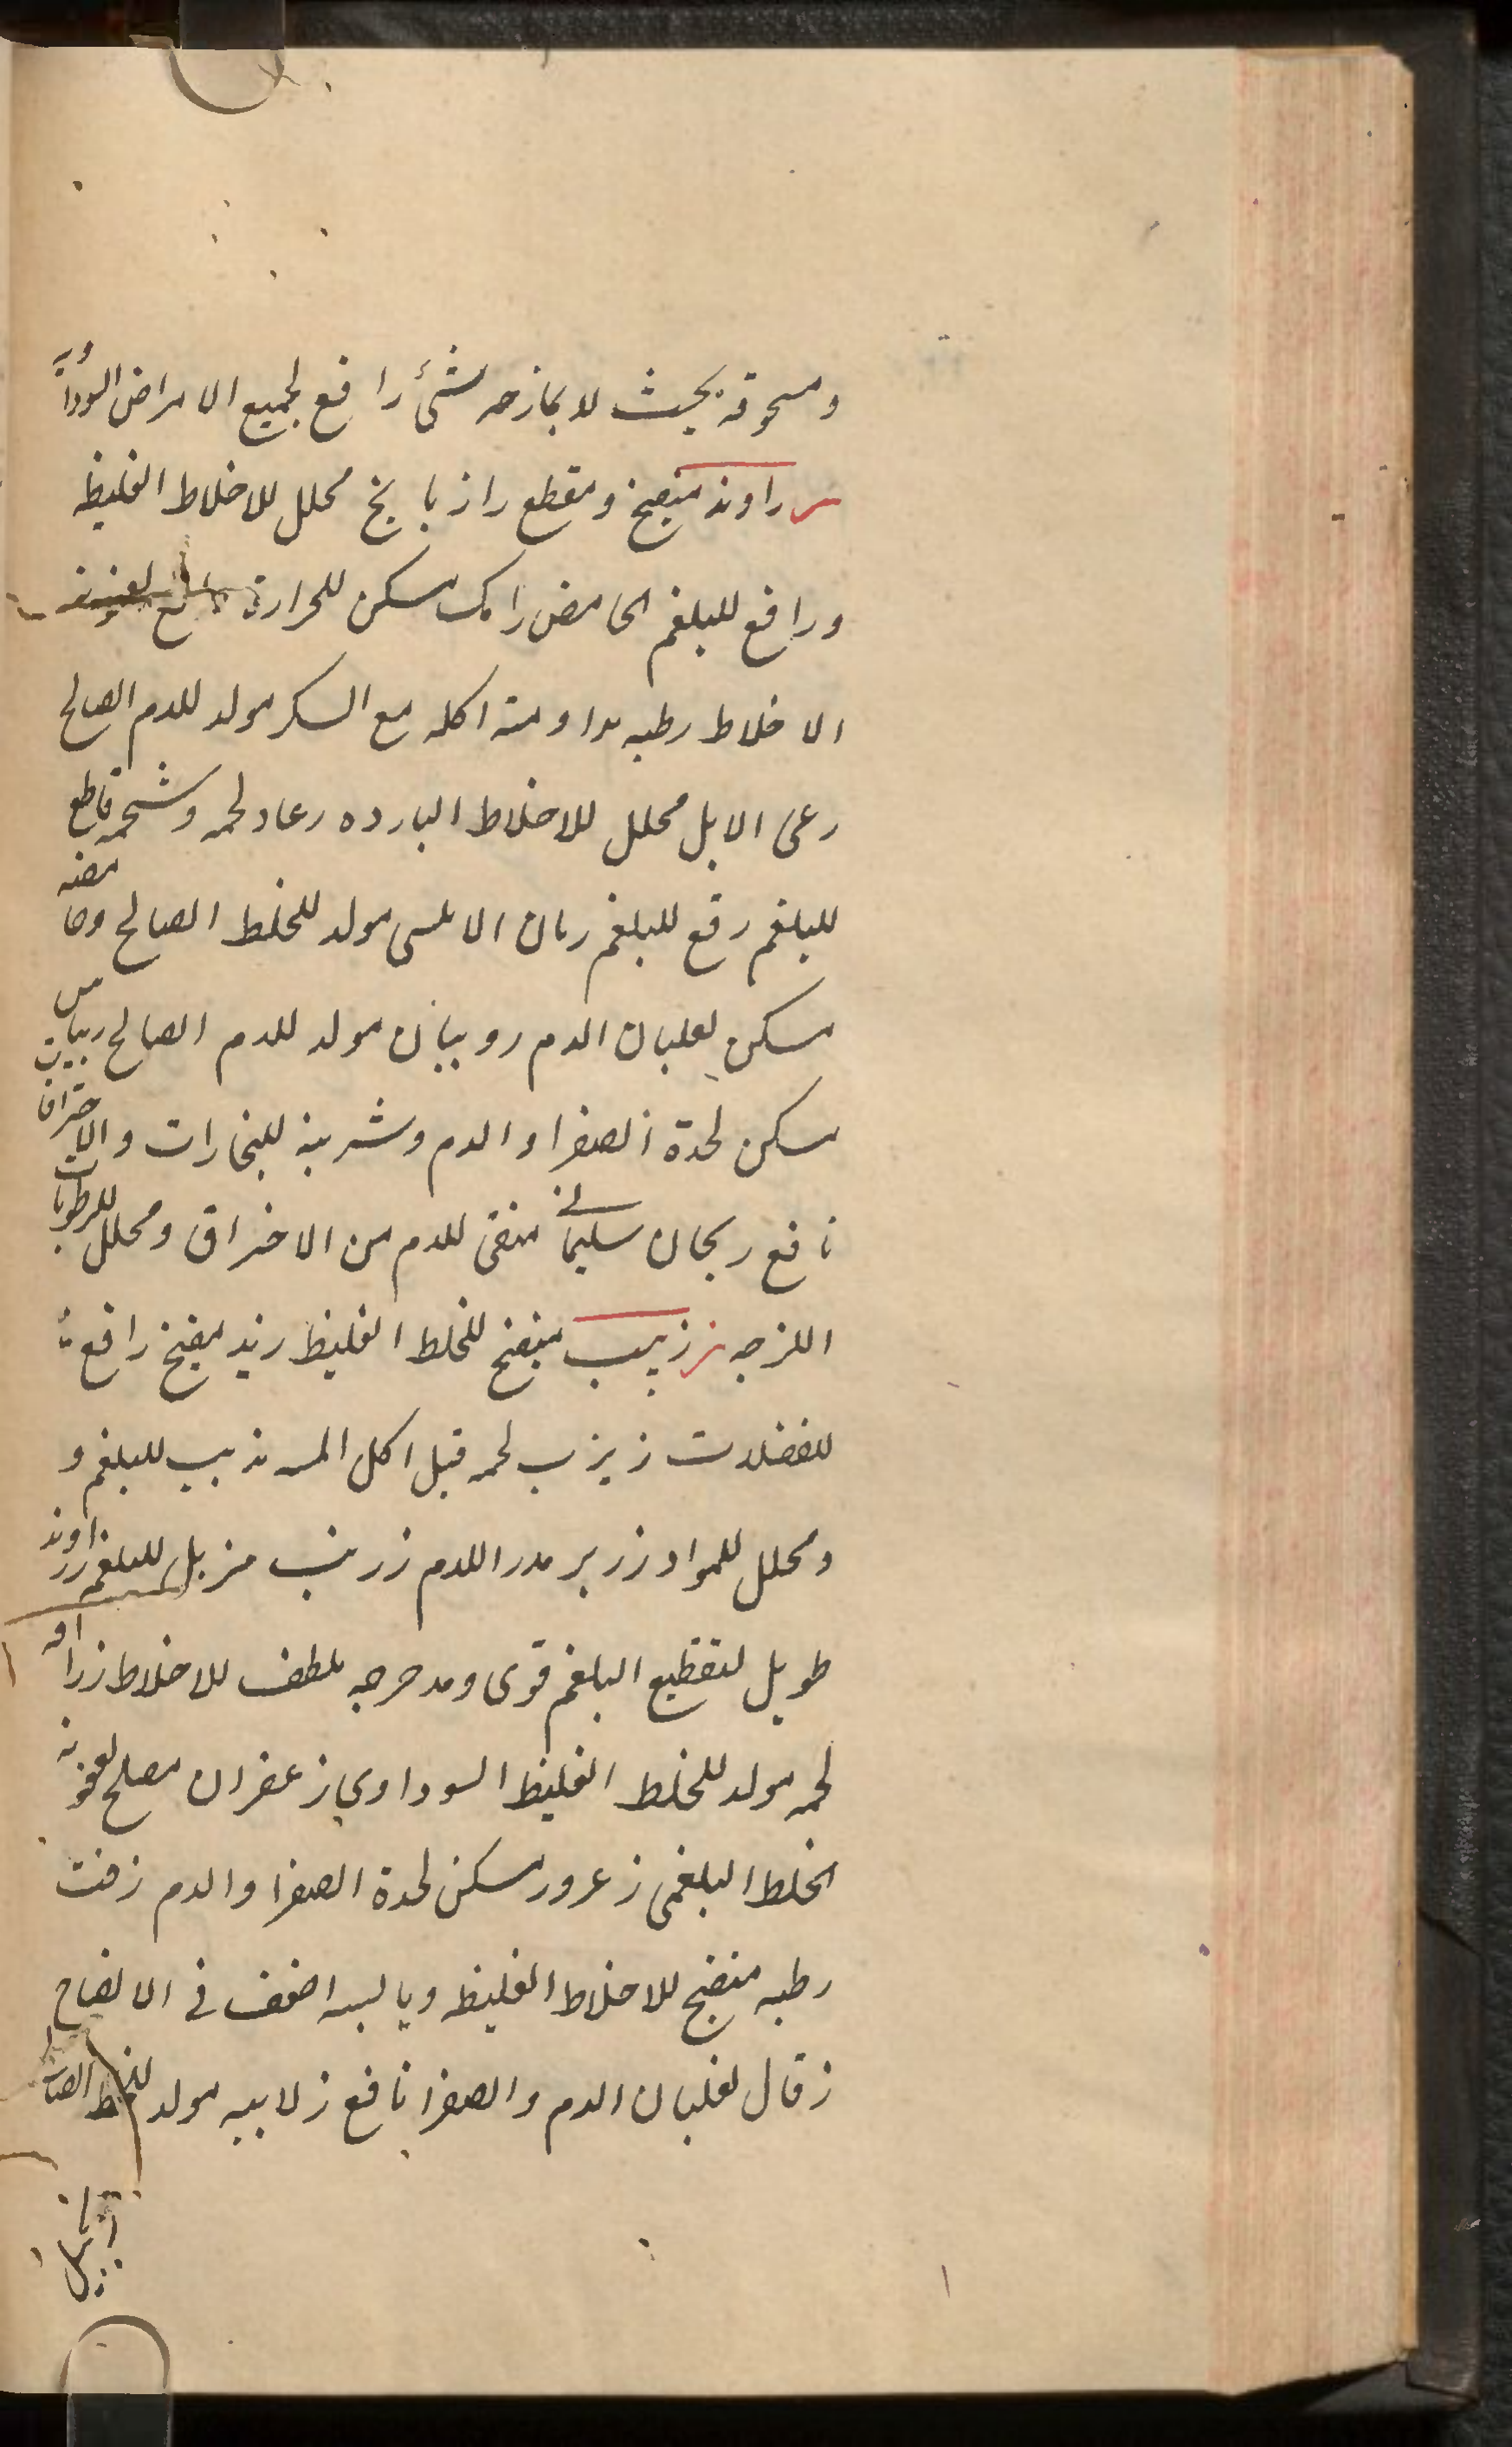 ومسحوقه بحيث لا يمازجه شئ رافع لجميع الامراض السوداوية
ر راوند منضج ومقطع رازيانج محلل للاخلاط الغليظه
ورافع للبلغم الحامض رامك مسكن للحرارة
الاخلاط رطبه مداومة اكله مع السكر مولد للدم الصالح
رعى الابل محلل للاخلاط البارده رعاد لحمه وشحمه قاطع
للبلغم رقع للبلغم رمان الاملسى مولد للخلط الصالح وحامضه
مسكن لغليان الدم روبيان مولد للدم الصالح ريباس
مسكن لحدة الصفرا والدم وشربه للبخارات والاحتراق
نافع ريحان سليمانى منقى للدم من الاحتراق ومحلل للرطوبات
اللزجه ز زبيب منضج للخلط الغليظ زبد منضج رافع
للفضلات لحمه قبل اكل مذيب للبلغم و
ومحلل للمواد زرير مدر اللدم زرنب مزيل للبلغم زراوند
طويل لتقطيع البلغم قوى ومدحرجه ملطف للاخلاط زرافه
لحمه مولد للخلط الغليظ السوداوي زعفران مصلح لعفونة
الخلط البلغمى زعرور مسكن لحدة الصفرا والدم زفت
رطبه منضج للاخلاط الغليظه ويابسه اضعف فى الانضاج
زقال لغليان الدم والصفرا نافع زلابيه مولد للخلط الصالح